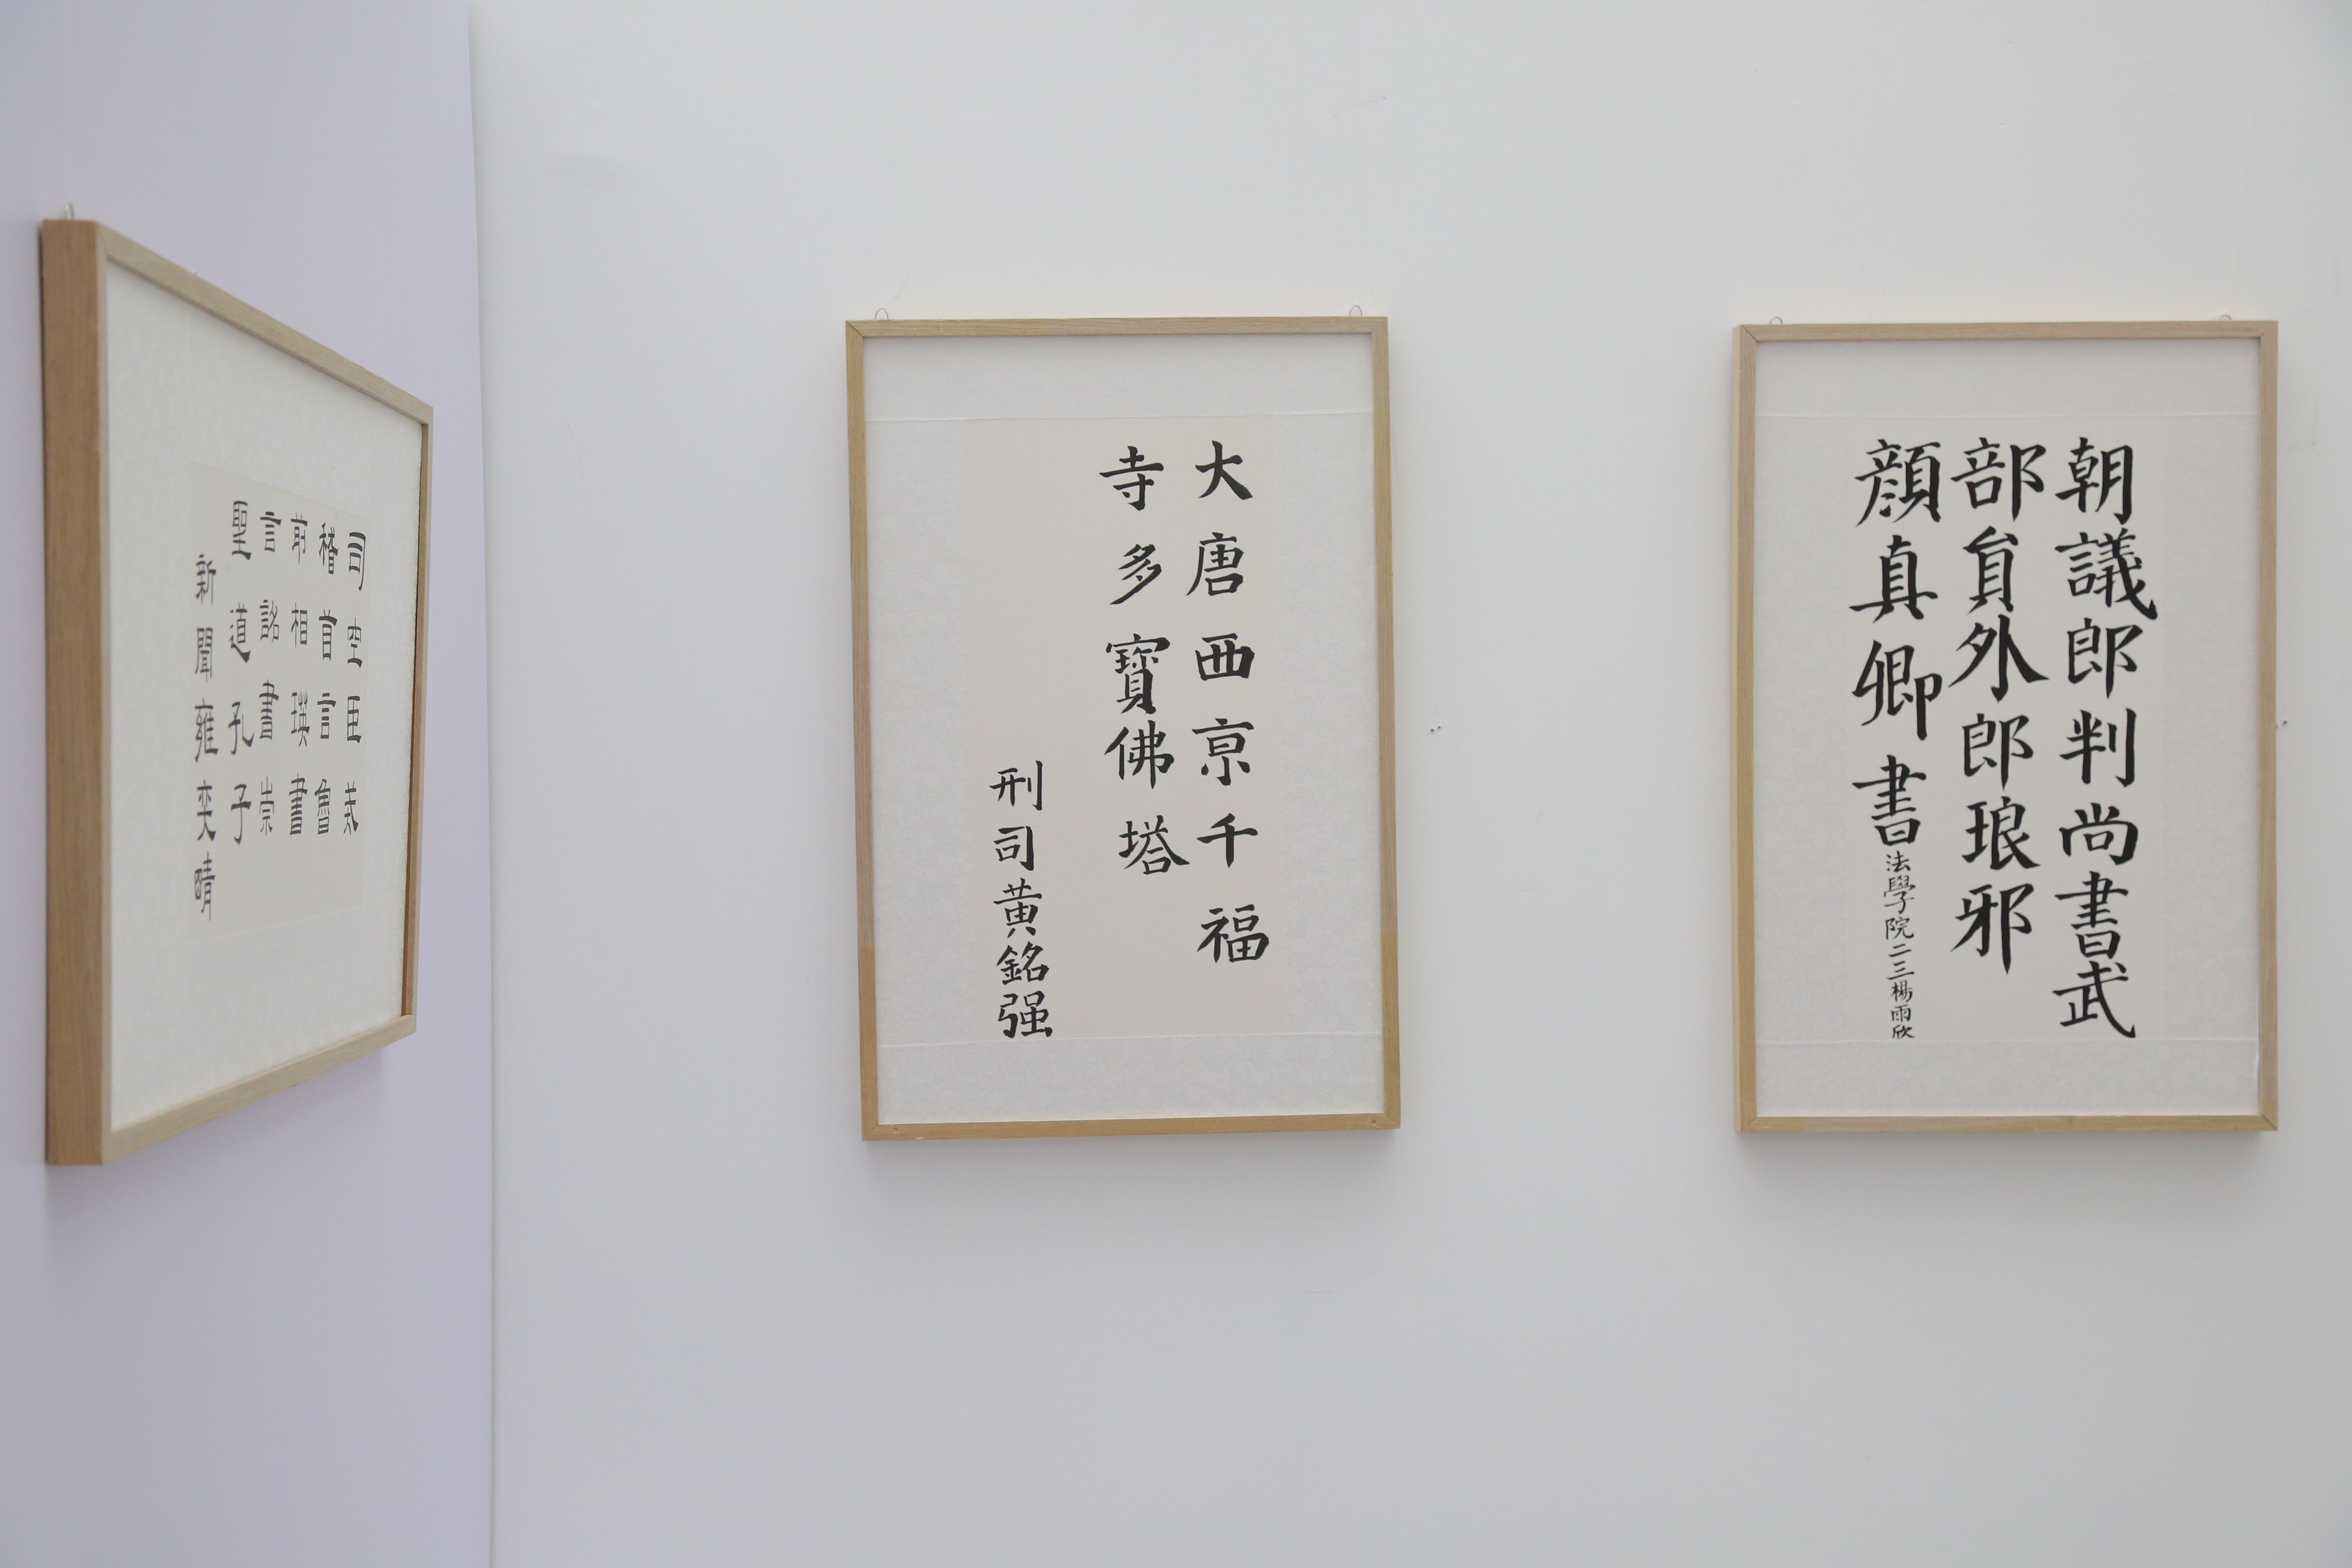 司空臣戒
稽首言魯
前相瑛書
言詔書崇
聖道孔子
新聞雍奕晴
大唐西京千福
寺多寶佛塔
刑司黄銘强
朝議郎判尚書武
部貟外郎琅邪
顔真卿書
法學院二三楊雨欣